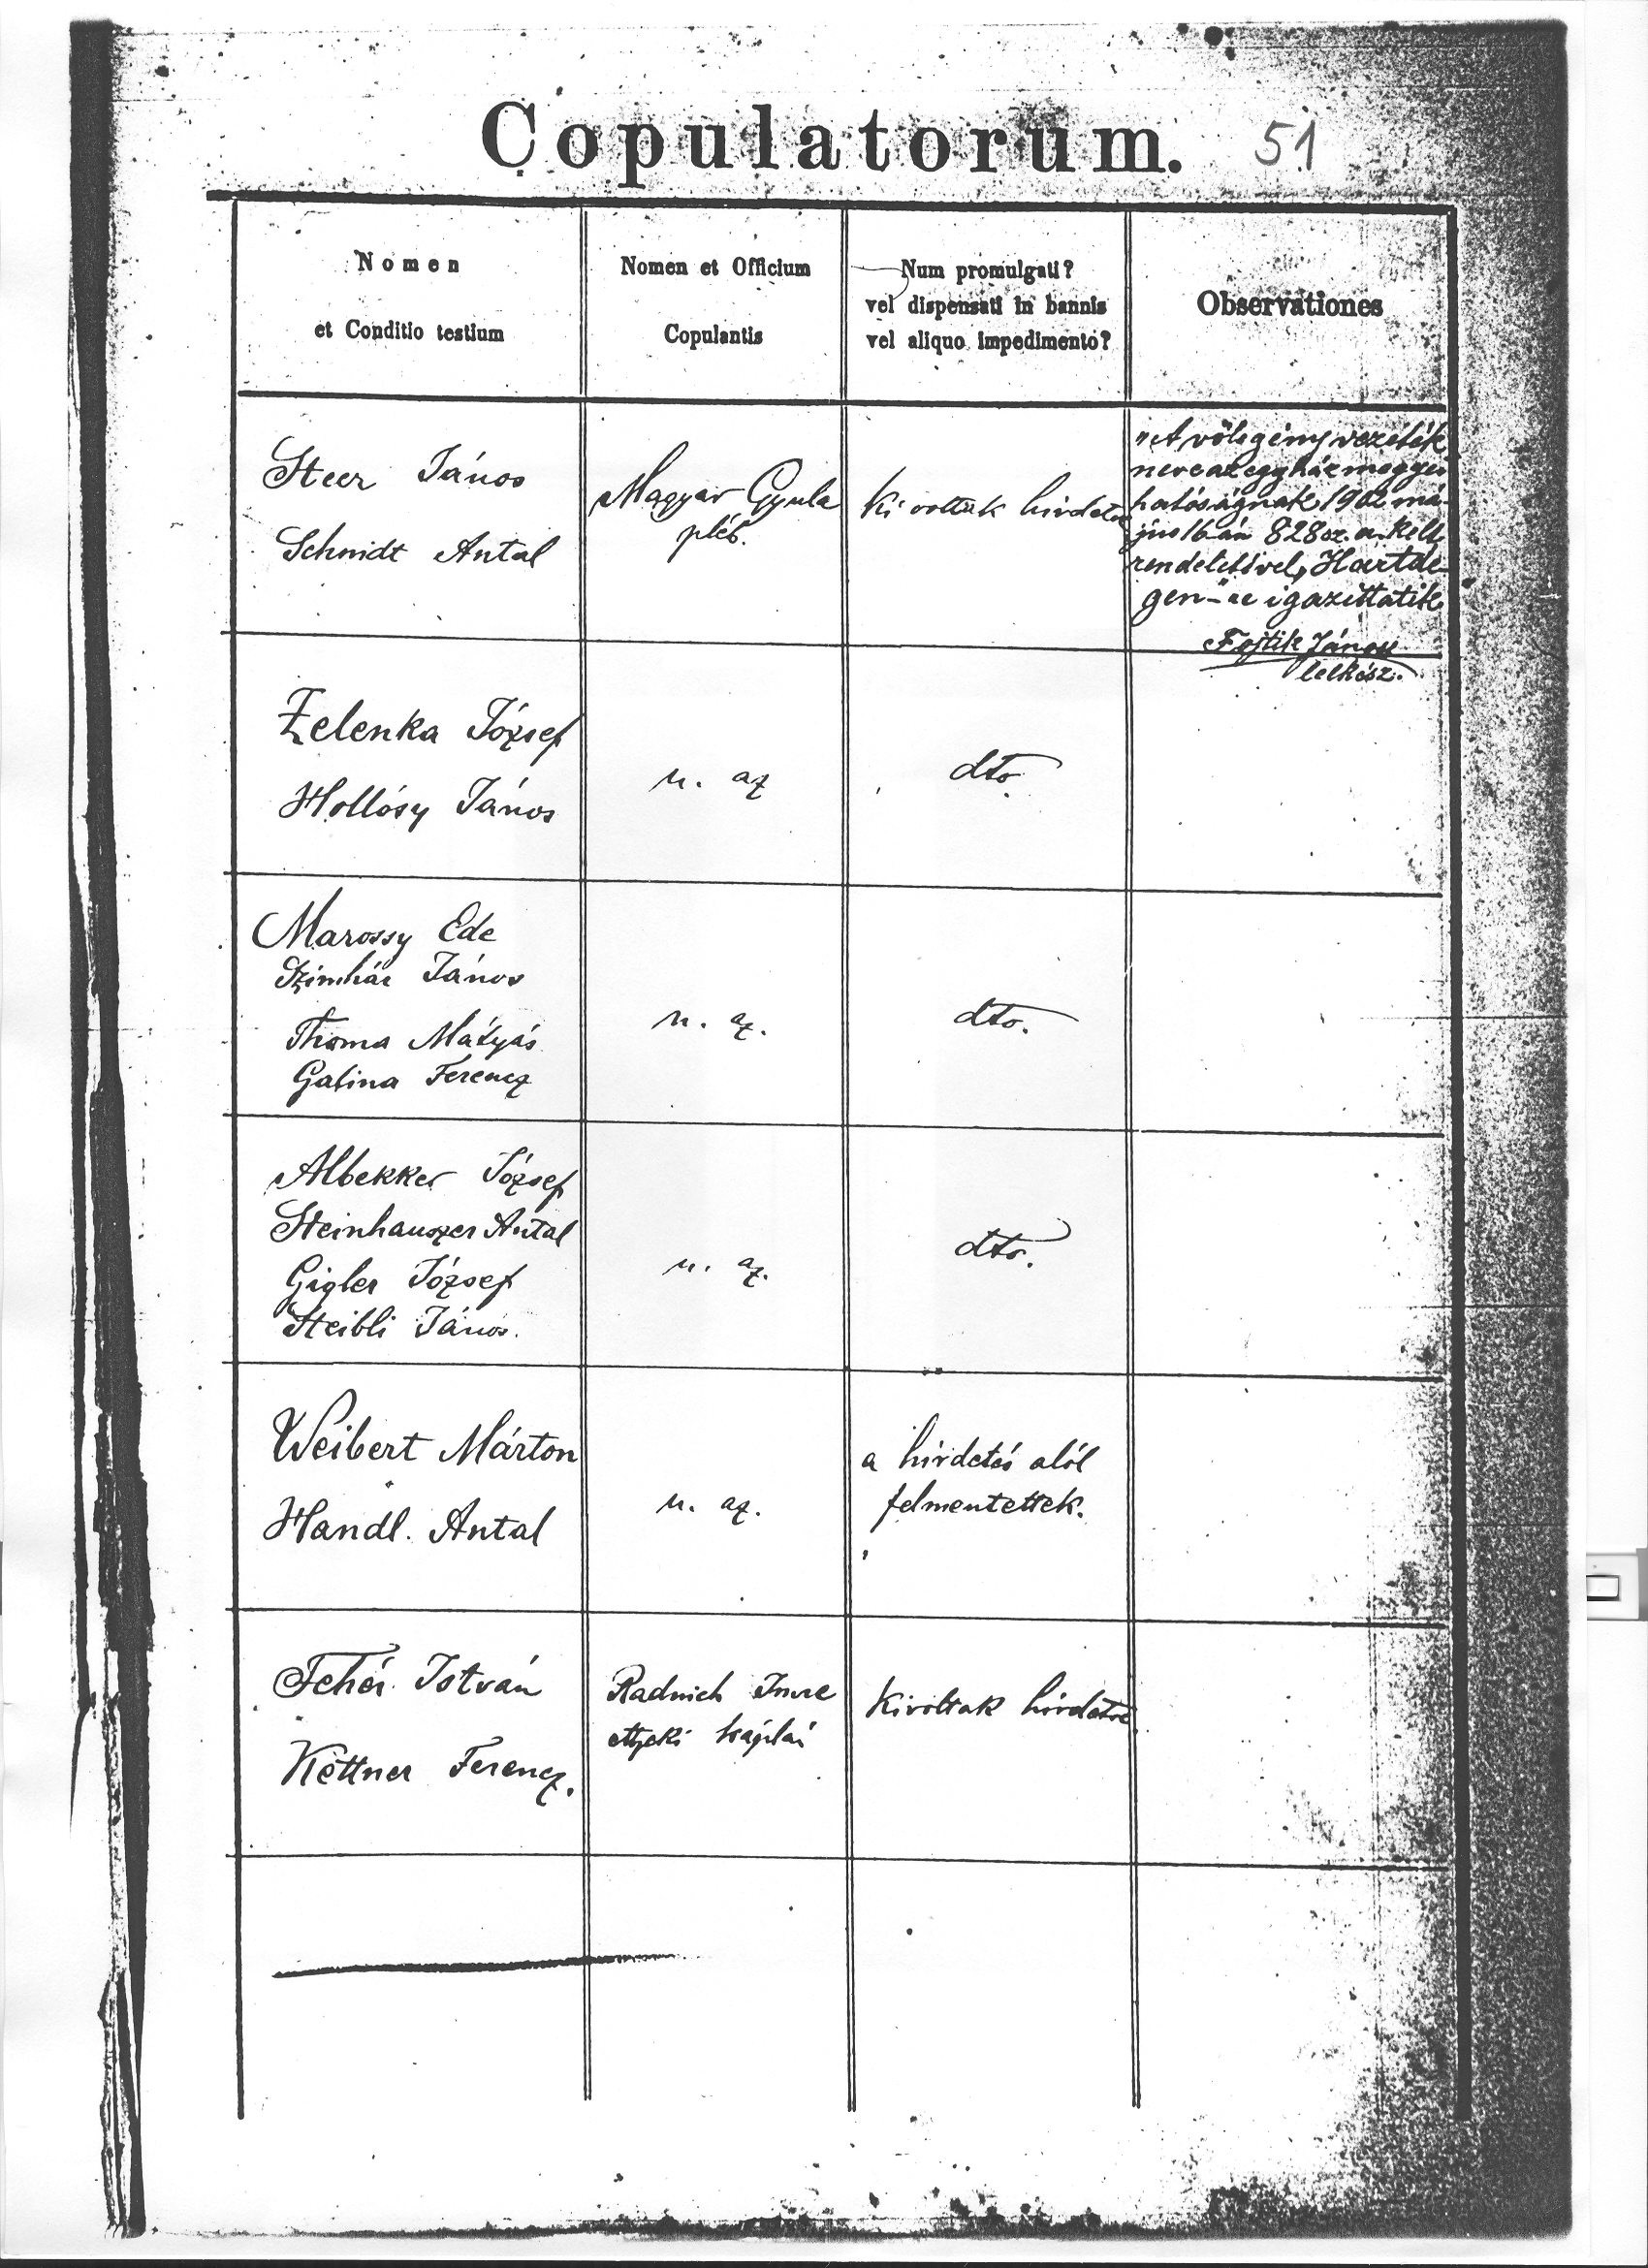 Copulatorum. 51
Nomen
et Conditio testium
Nomen et Officium
Copulantis
Num promulgati?
vel dispensati in bannis
vel aliquo impedimento?
Observationes
Steer János
Schmidt Antal
Magyar Gyula
pléb.
Ki voltak hirdetve
"A vőlegény vezeték
neve az egyházmegyei
hatóságnak 1902 má-
jus 16-án 828 sz. a. kelt
rendeletével „Hartde-
gen"-re igazíttatik
Fojtik János
lelkész.
Zelenka József
Hollósy János
u. az
dto.
Marossy Ede
János
Thoma Mátyás
Galina Ferencz
u. az.
dto.
Albekker József
Steinhauszer Antal
Gigler József
Steibli János.
u. az.
dto.
Weibert Márton
Handl. Antal
u. az.
a hirdetés alól
felmentettek.
Fehér István
Kettner Ferencz.
Radnich Imre
etyeki káplán
Ki voltak hirdetve